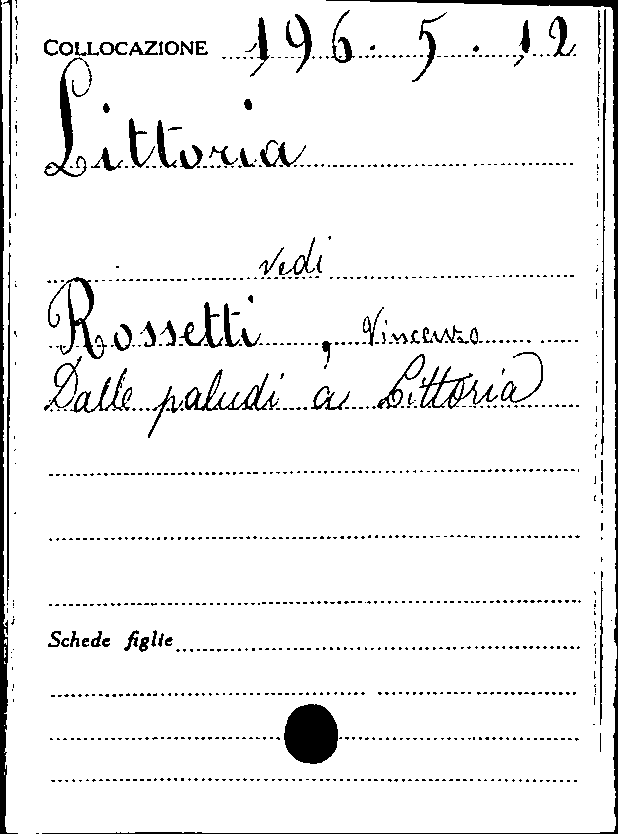 COLLOCAZIONE 196. 5. 12
Littoria
vedi
Rossetti, Vincenzo
Dalle paludi a Littoria
Schede figlie